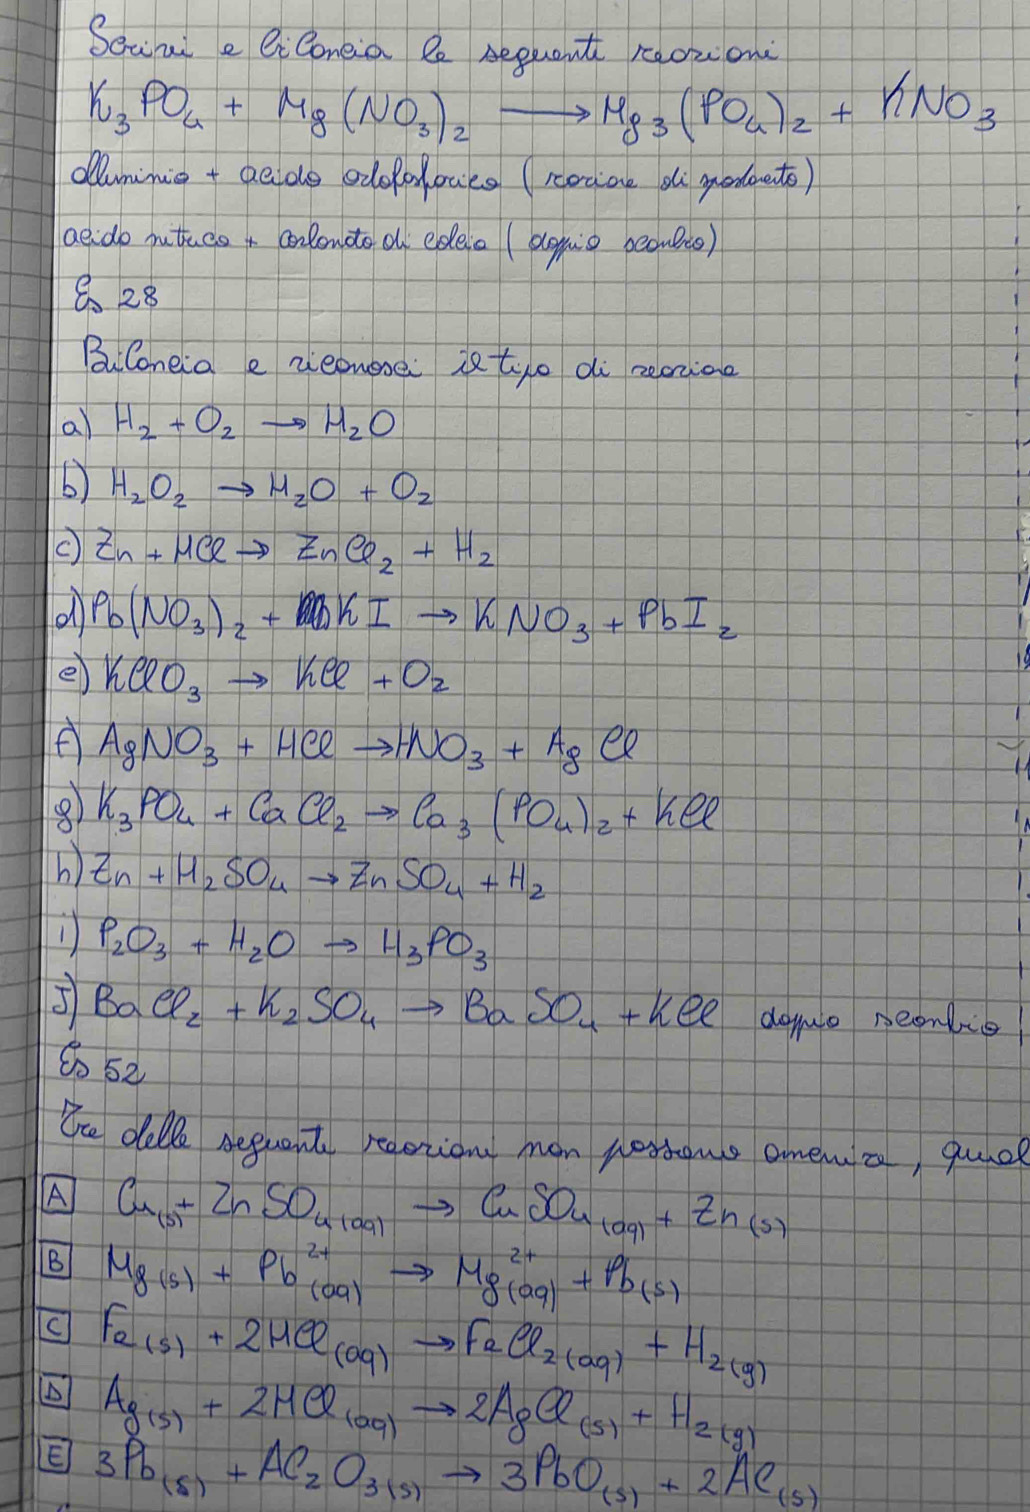 Scrivi e bilancia le seguenti reazioni
K₃PO₄ + Mg(NO₃)₂ ⟶ Mg₃(PO₄)₂ + KNO₃
alluminio + acido ortofosforico (reazione di spostamento)
acido nitrico + carbonato di calcio (doppio scambio)
Es 28
Bilancia e riconosci il tipo di reazione
a) H₂ + O₂ → H₂O
b) H₂O₂ → H₂O + O₂
c) Zn + HCl → ZnCl₂ + H₂
d) Pb(NO₃)₂ + KI → KNO₃ + PbI₂
e) KClO₃ → KCl + O₂
f) AgNO₃ + HCl → HNO₃ + AgCl
g) K₃PO₄ + CaCl₂ → Ca₃(PO₄)₂ + KCl
h) Zn + H₂SO₄ → ZnSO₄ + H₂
i) P₂O₃ + H₂O → H₃PO₃
J) BaCl₂ + K₂SO₄ → BaSO₄ + KCl doppio scambio
Es 52
Tre delle seguenti reazioni non possono avvenire, qual
A Cu(s) + ZnSO₄(aq) → CuSO₄(aq) + Zn(s)
B Mg(s) + Pb²⁺(aq) → Mg²⁺(aq) + Pb(s)
C Fe(s) + 2HCl(aq) → FeCl₂(aq) + H₂(g)
D Ag(s) + 2HCl(aq) → 2AgCl(s) + H₂(g)
E 3Pb(s) + Al₂O₃(s) → 3PbO(s) + 2Al(s)